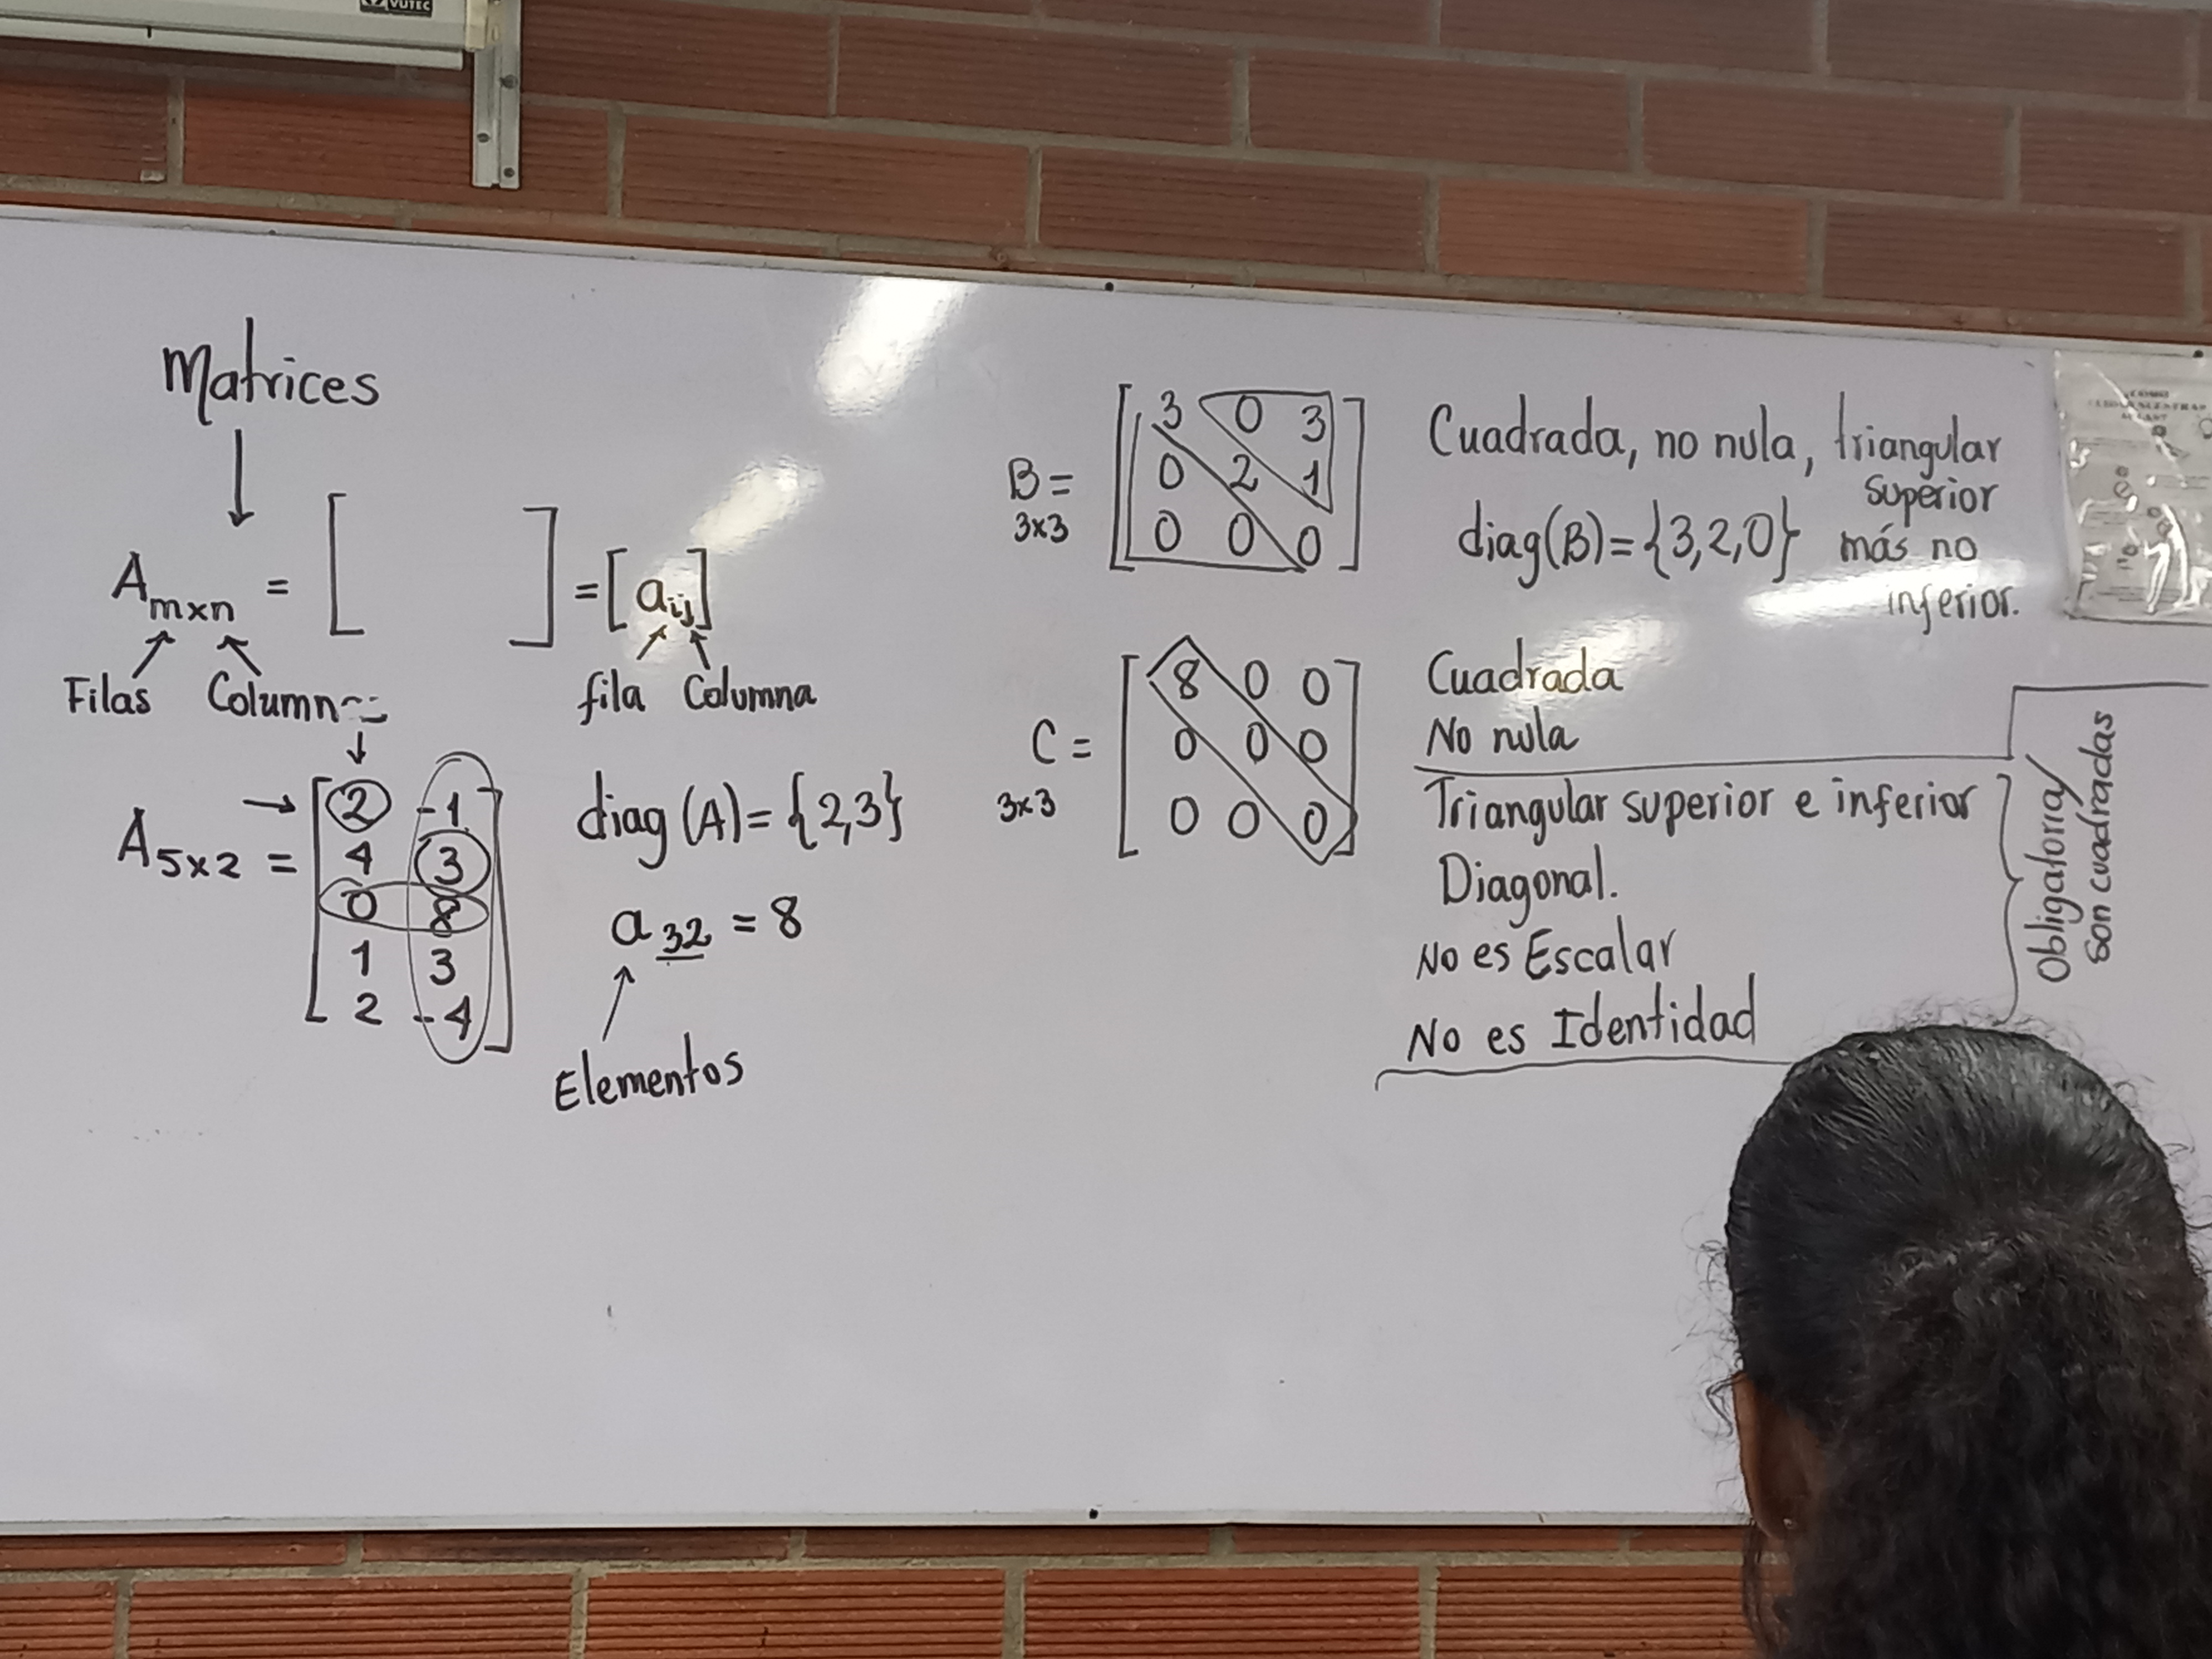 VUTEC
Matrices
A m×n = [ ] = [aij]
Filas Column
fila Columna
A 5×2 = [
2 -1
4 3
0 8
1 3
2 -4
]
diag(A) = {2,3}
a 32 = 8
Elementos
B = 3×3 [
3 0 3
0 2 1
0 0 0
]
Cuadrada, no nula, triangular
superior
más no
inferior.
diag(B) = {3,2,0}
C = 3×3 [
8 0 0
0 0 0
0 0 0
]
Cuadrada
No nula
Triangular superior e inferior
Diagonal.
No es Escalar
No es Identidad
Obligatorra/
son cuadradas
COMO